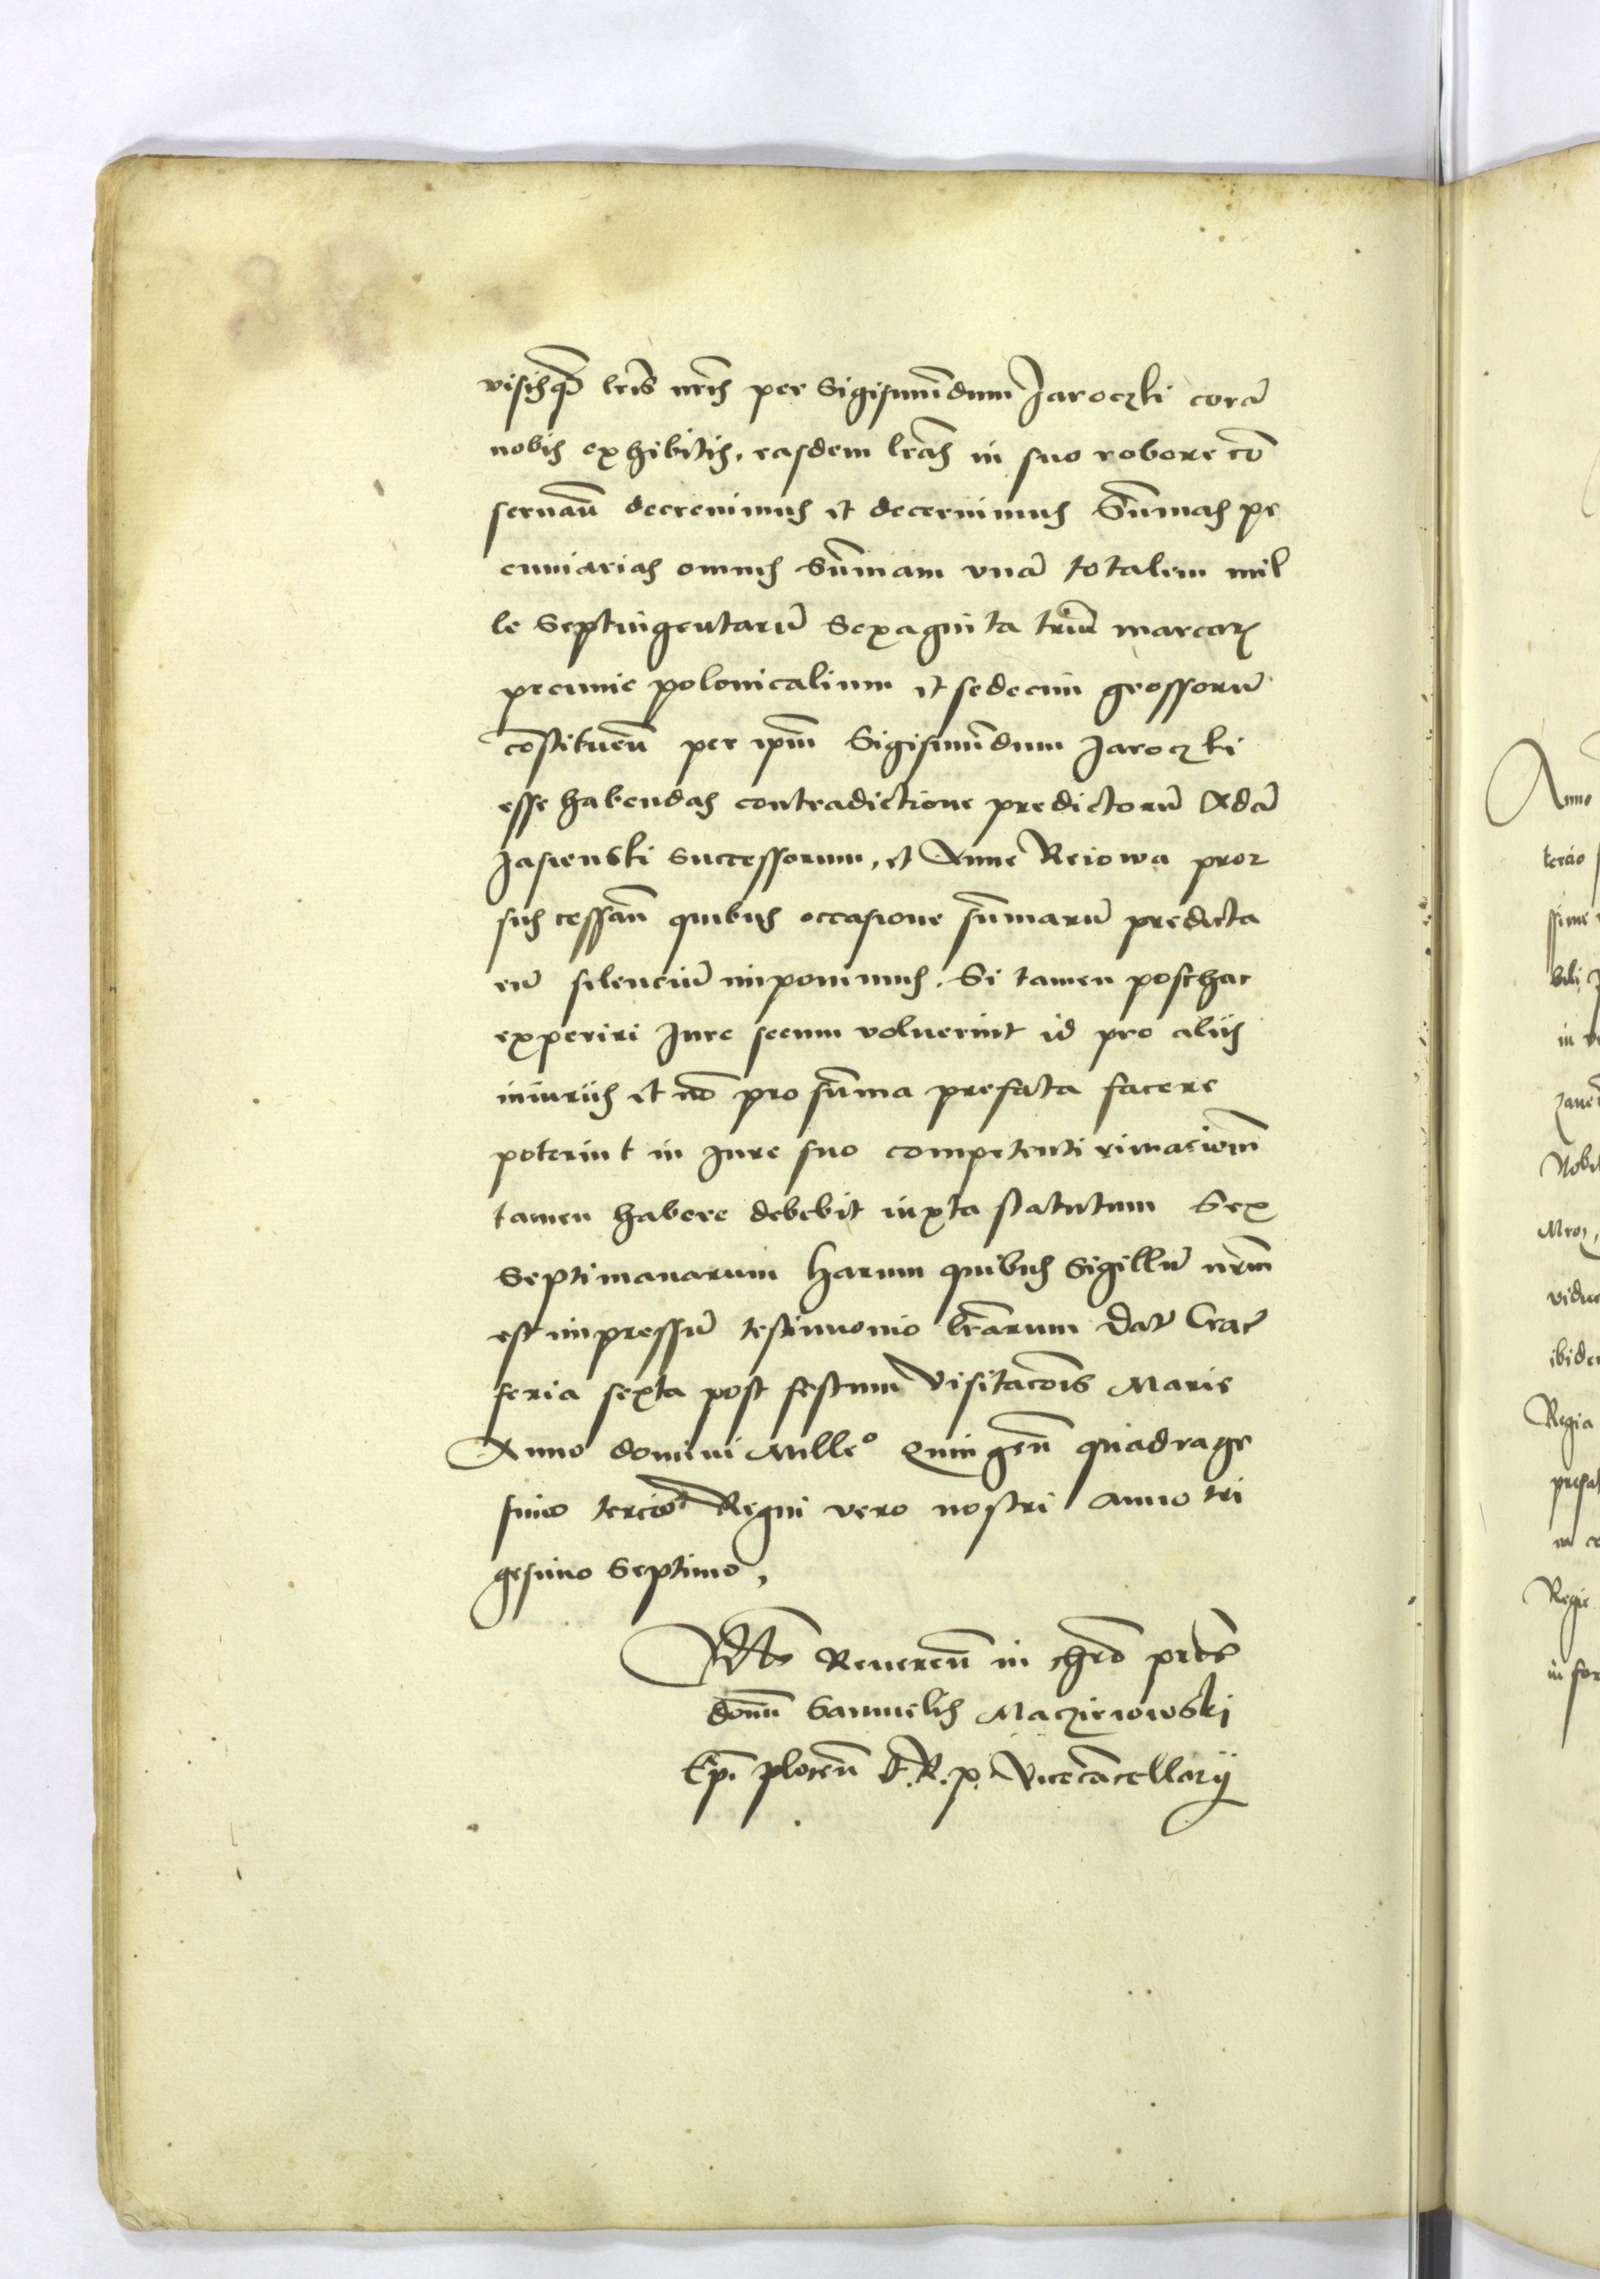 visisq̃ lr̃is nr̃is per Sigismũndum Jaroczki corã
nobis exhibitis, easdem lr̃as in suo robore cõ
seruañ decreuimus et decernimus Sũmas pe
cuniarias omnes Sũmam vnã totalem mil
le Septuigentarũ Sexaginta triũ marcarꝝ
pecunie polonicalium et sedecim grossorũ
cõstitueñ per ipm̃ Sigismũndum Jaroczki
esse habendas contradictione predictorũ Adã
Jasienski Successorum, et Anne Reiowa pror
sus cessañ quibus occasione sũmarũ predicta
rũ silenciũ imponimus. Si tamen posthac
experiri Jure secum voluerint id pro alijs
iniurijs et nõ pro sũma prefata facere
poterint in Jure suo competenti rimaciom̃
tamen habere debebit iuxta statutum Sex
Septimanarum harum quibus Sigillũ nr̃m
est impressũ testimonio lr̃arum Dat̃ Crac̃
feria sexta post festum Visitacõis Marie
Anno domini Mille° Quingeñ quadrage
simo tercio Regni vero nostri anno tri
gesimo Septimo,
Reuereñ in chr̃o pr̃is
domĩ Samuelis Maczieiowski
Ep̃i ploceñ E. R. p. Vicecãcellarij
Anno
tercio
ssime
bili
in
Nobi
Mroz,
vidue
ibide
Regia
prefat
Regie
in for